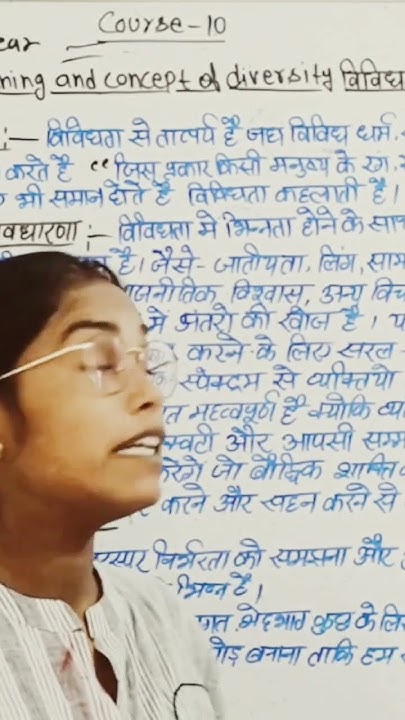 Course-10
ear
ning and concept of diversity विविध
:- विविधता से तात्पर्य है जहाँ विविध धर्म,
करते है "जिस प्रकार किसी मनुष्य के रंग,
भी समान होते है विविधता कहलाती है।
वधारणा :- विविधता मे भिन्नता होने के साथ
है। जैसे- जातीयता, लिंग, साम
जनीतिक, विश्वास, अन्य विच
में अंतरो की खोज है। य
करने के लिए सरल -
से व्यक्तियो
त महत्वपूर्ण है क्योकि व्य
और आपसी सम्म
रेंगे जो बौद्धिक शक्ति
करने और सहन करने से
निर्भरता को समझना और
भिन्न है।
गत भेदभाव कुछ के लि
बनाना ताकि हम